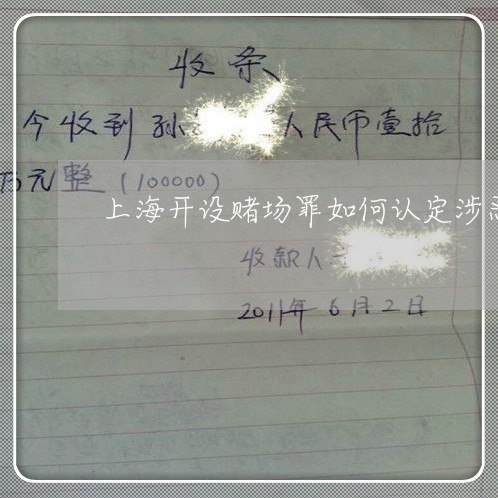 收条
今收到孙 人民币壹拾
万元整(100000)
上海开设赌场罪如何认定涉恶
收款人
2011年6月2日